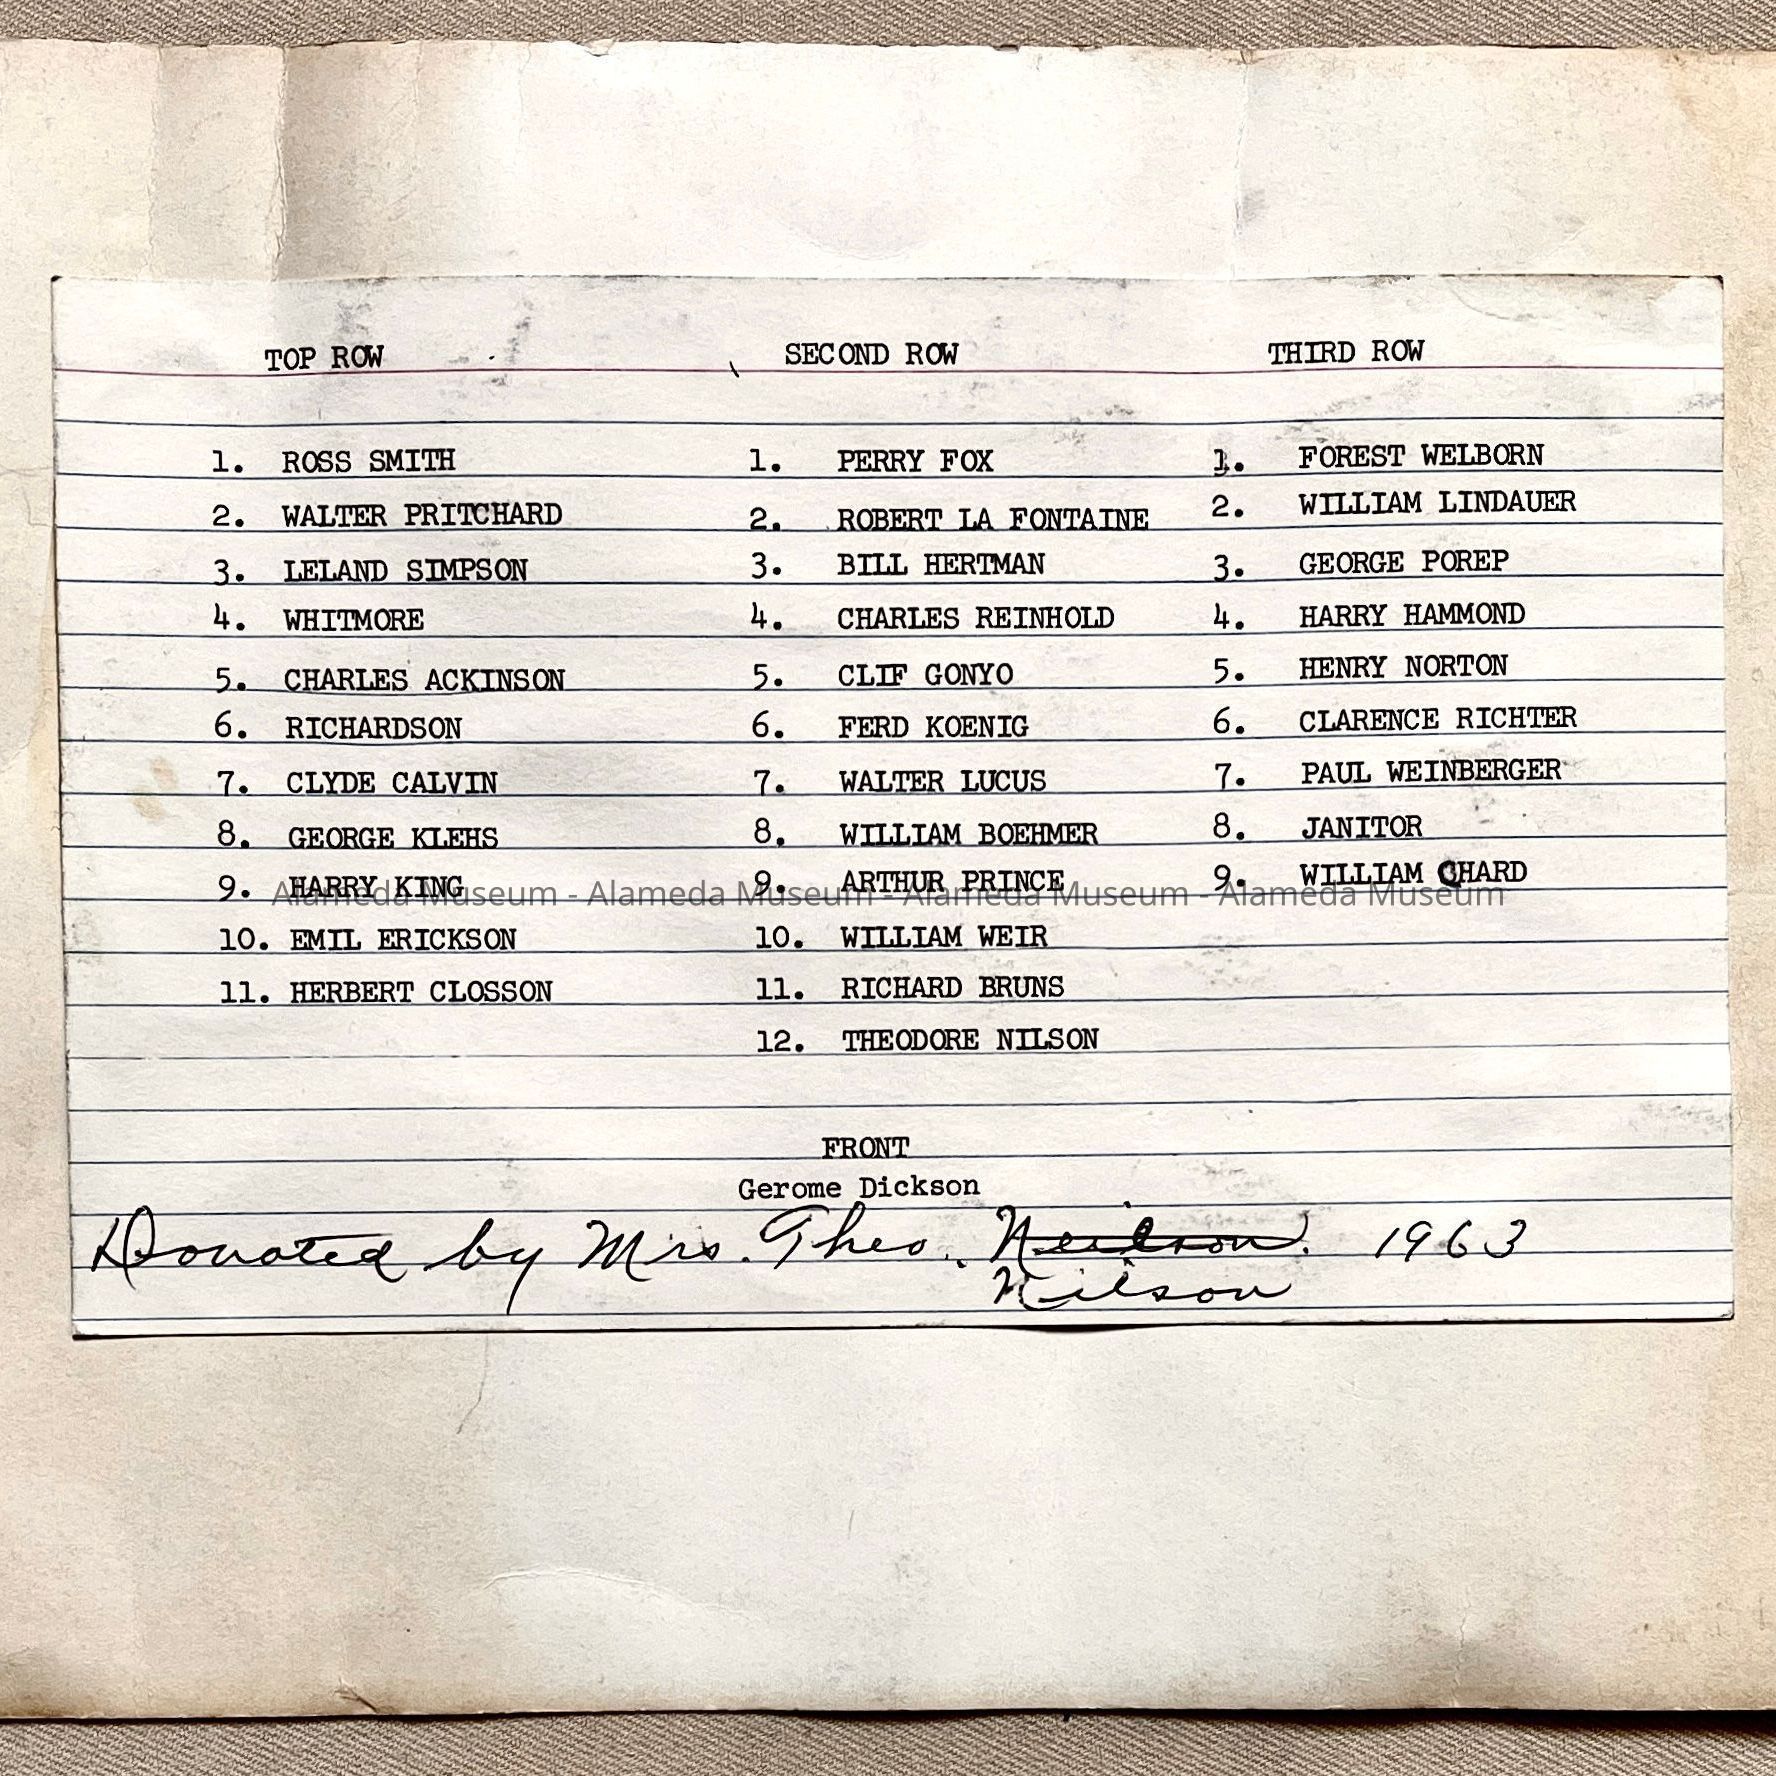 TOP ROW SECOND ROW THIRD ROW
1. ROSS SMITH 1. PERRY FOX 1. FOREST WELBORN
2. WALTER PRITCHARD 2. ROBERT LA FONTAINE 2. WILLIAM LINDAUER
3. LELAND SIMPSON 3. BILL HERTMAN 3. GEORGE POREP
4. WHITMORE 4. CHARLES REINHOLD 4. HARRY HAMMOND
5. CHARLES ACKINSON 5. CLIF GONYO 5. HENRY NORTON
6. RICHARDSON 6. FERD KOENIG 6. CLARENCE RICHTER
7. CLYDE CALVIN 7. WALTER LUCUS 7. PAUL WEINBERGER
8. GEORGE KLEHS 8. WILLIAM BOEHMER 8. JANITOR
9. HARRY KING 9. ARTHUR PRINCE 9. WILLIAM CHARD
Alameda Museum - Alameda Museum - Alameda Museum - Alameda Museum
10. EMIL ERICKSON 10. WILLIAM WEIR
11. HERBERT CLOSSON 11. RICHARD BRUNS
12. THEODORE NILSON
FRONT
Gerome Dickson
Donated by Mrs. Theo. Neilson. 1963
Nilson